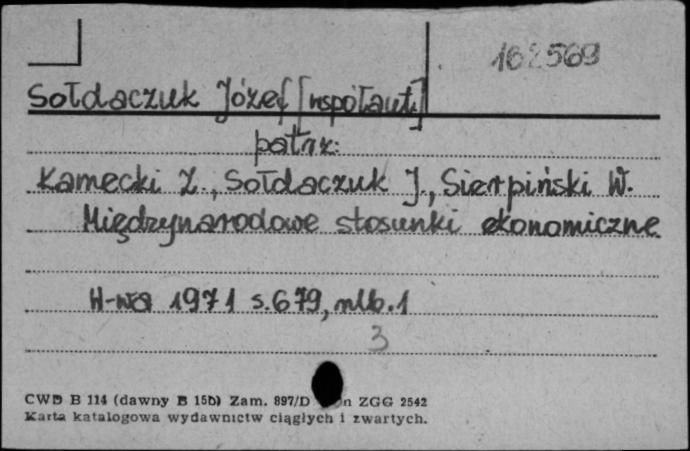 162569
Sołdaczuk Józef [współaut.]
patrz:
Kamecki Z., Sołdaczuk J., Sierpiński W.
Międzynarodowe stosunki ekonomiczne
W-wa 1971 s.679, nlb.1
3
CWD B 114 (dawny B 15b) Zam. 897/D n ZGG 2542
Karta katalogowa wydawnictw ciągłych i zwartych.